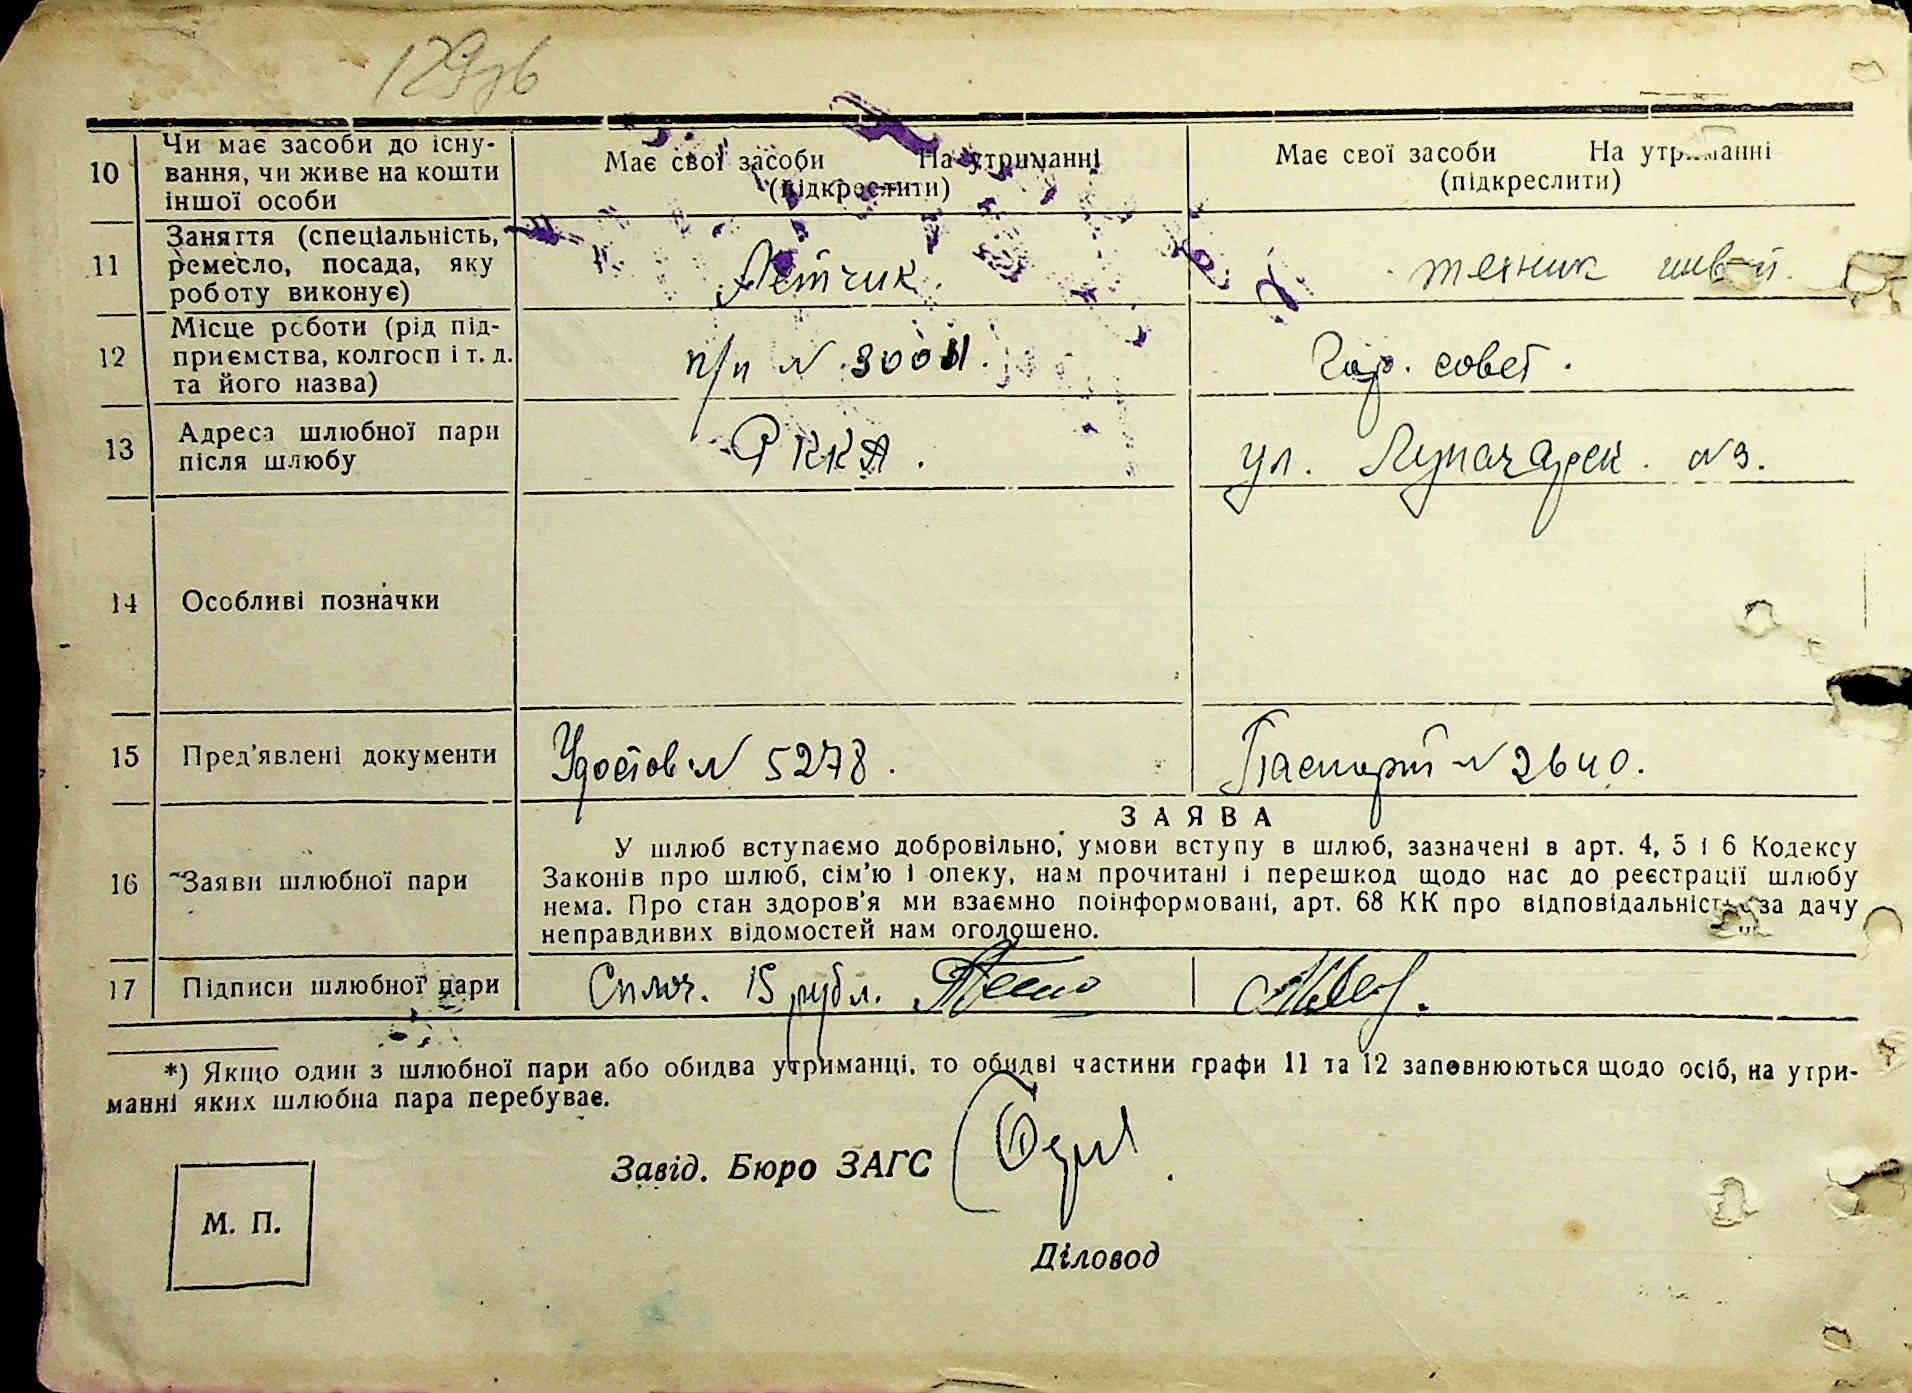 129зв
10 Чи має засоби до існу-
вання, чи живе на кошти
іншої особи
Має свої засоби На утриманні
(підкреслити)
Має свої засоби На утриманні
(підкреслити)
11 Заняття (спеціальність,
ремесло, посада, яку
роботу виконує)
Летчик.
техник
12 Місце роботи (рід під-
приємства, колгосп і т. д.
та його назва)
п/п №
Гор. совет.
13 Адреса шлюбної пари
після шлюбу
РККА.
ул. Луначарск. №3.
14 Особливі позначки
15 Пред'явлені документи
Удостов № 5278.
Паспорт № 2640.
16 Заяви шлюбної пари
ЗАЯВА
У шлюб вступаємо добровільно, умови вступу в шлюб, зазначені в арт. 4, 5 і 6 Кодексу
Законів про шлюб, сім'ю і опеку, нам прочитані і перешкод щодо нас до реєстрації шлюбу
нема. Про стан здоров'я ми взаємно поінформовані, арт. 68 КК про відповідальність за дачу
неправдивих відомостей нам оголошено.
17 Підписи шлюбної пари
Сплоч. 15 рубл.
*) Якщо один з шлюбної пари або обидва утриманці, то обидві частини графи 11 та 12 заповнюються щодо осіб, на утри-
манні яких шлюбна пара перебуває.
Завід. Бюро ЗАГС
М. П.
Діловод